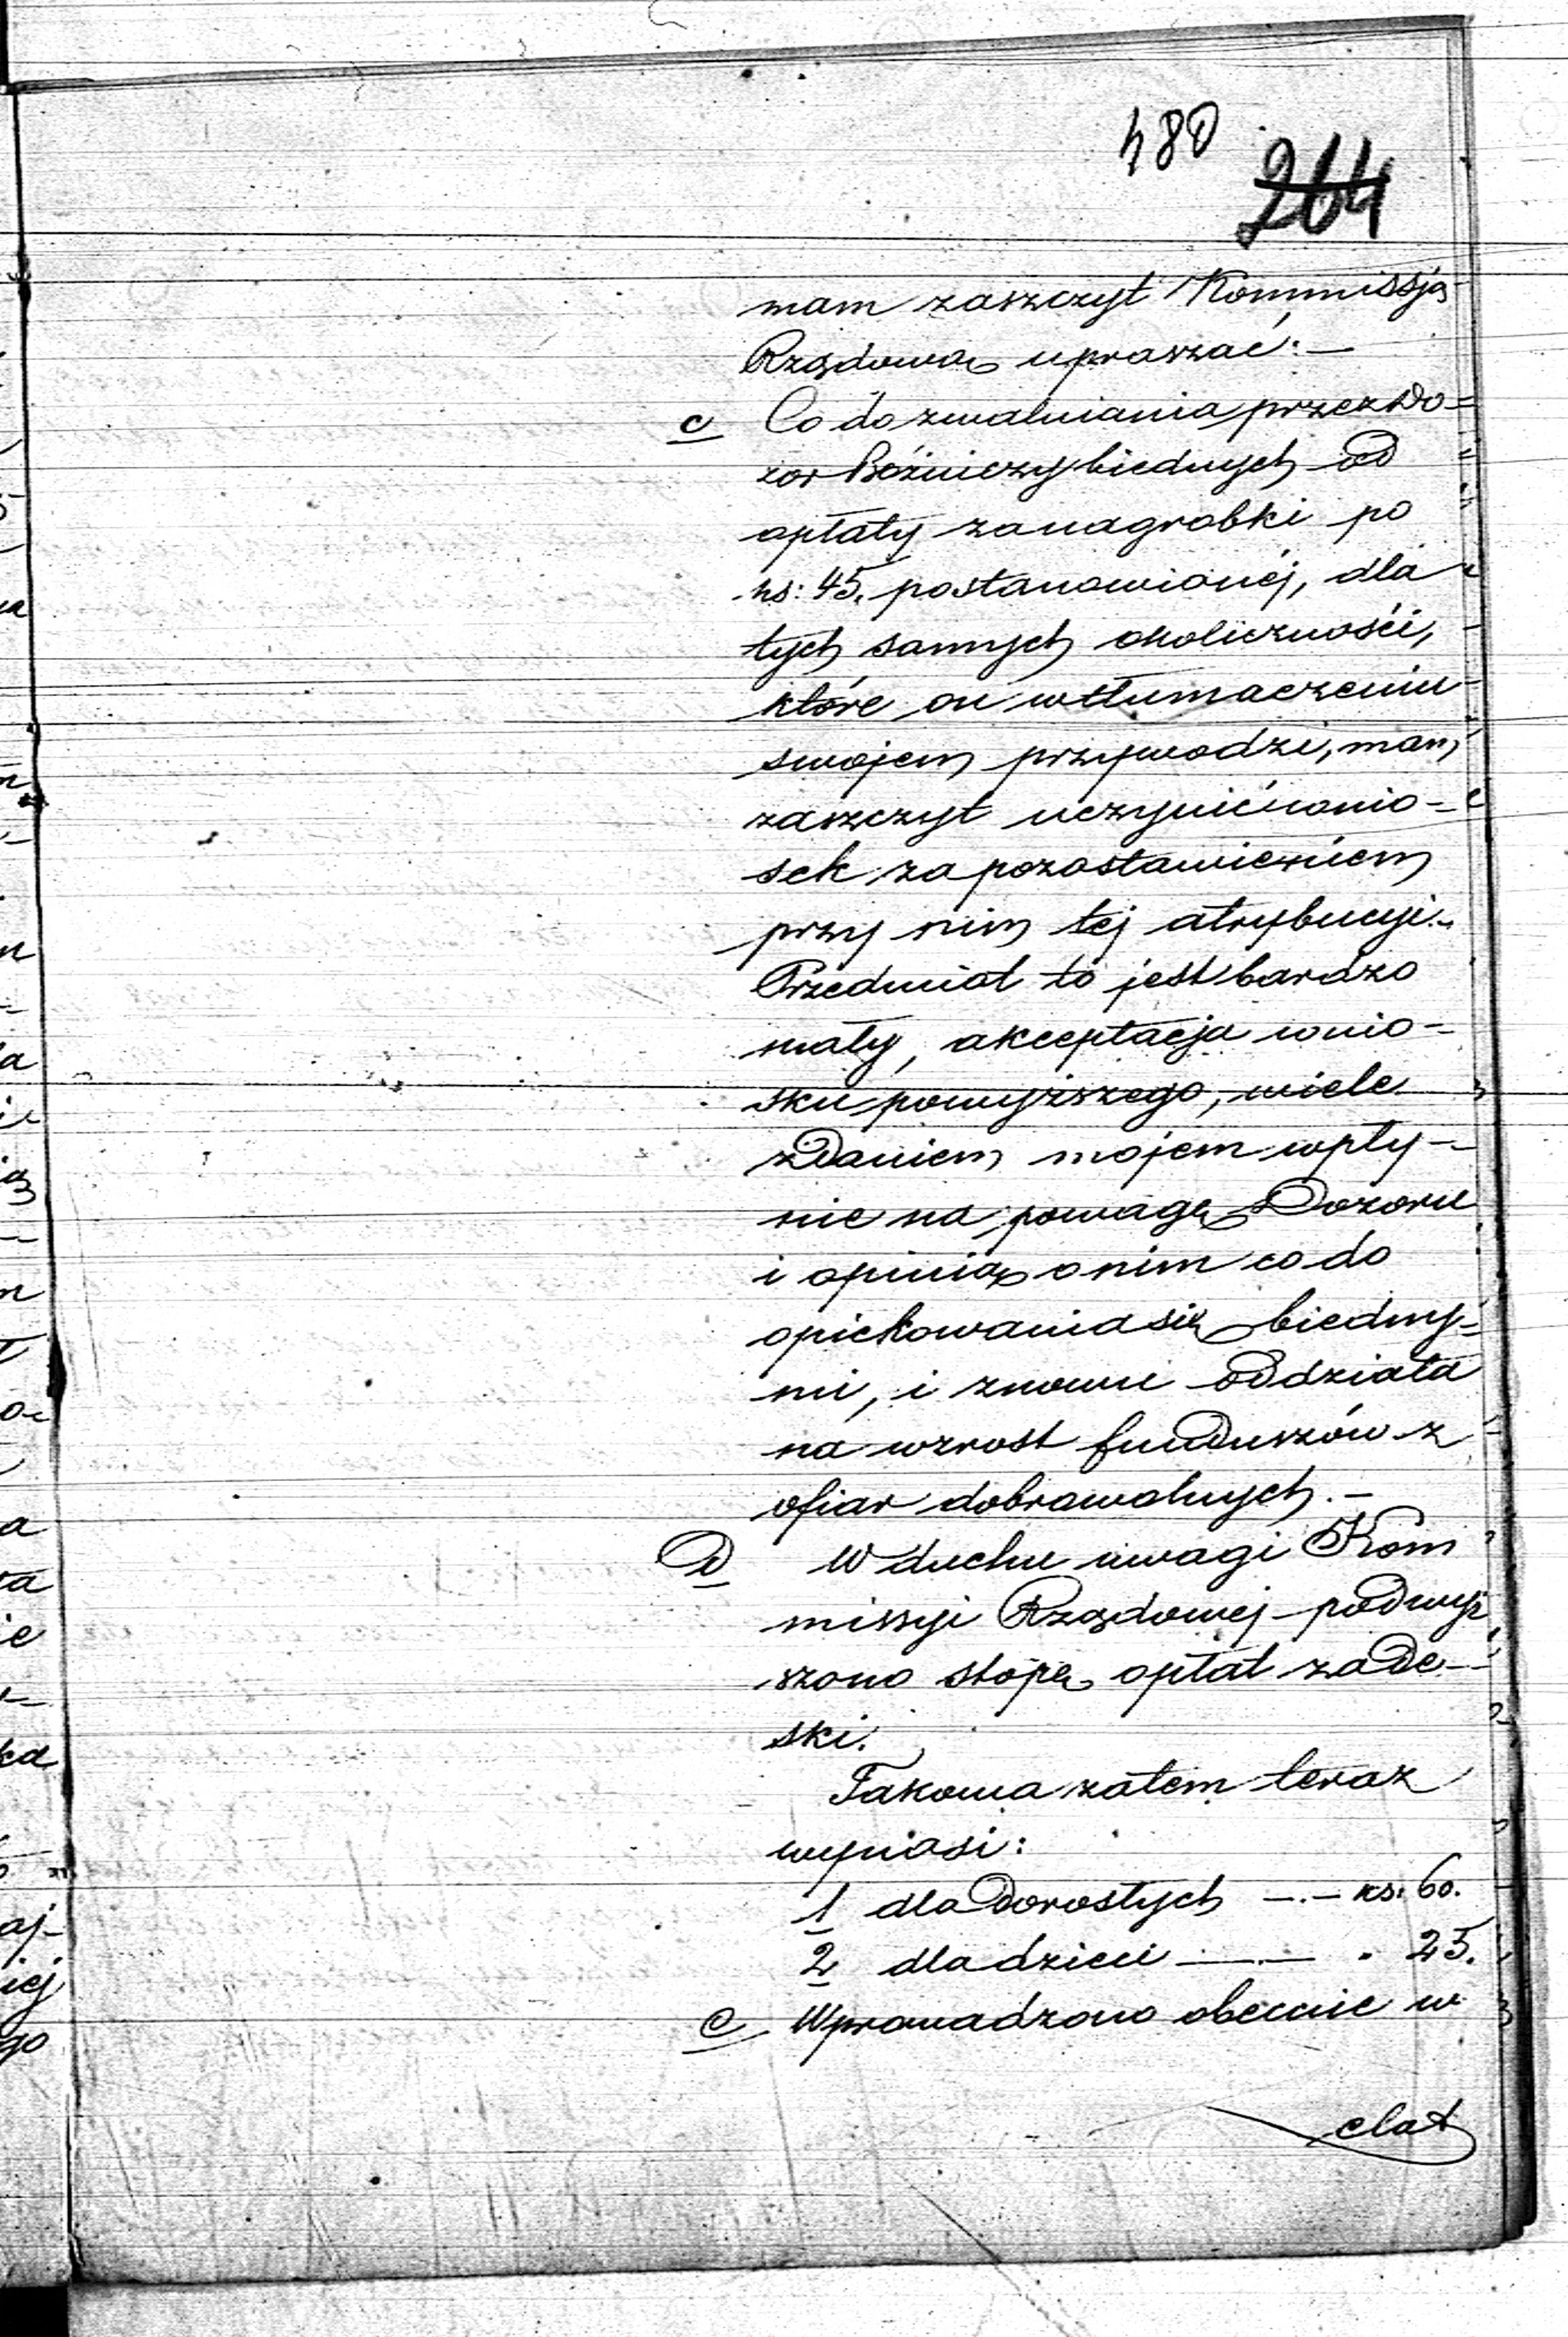 480
264
mam zaszczyt Kommissją
Rządową upraszać: —
c Co do zwalniania przez Do=
zor Bóżniczy biednych od
opłaty za nagrobki po
rs: 45. postanowionéj, dla
tych samych okoliczności,
które on w tłumaczeniu
swojem przywodzi, mam
zaszczyt uczynić wnio=
sek za pozostawieniem
przy nim tej atrybucyi.
Przedmiot to jest bardzo
mały, akceptacja wnio-
sku powyższego, wiele
zdaniem mojem wpły-
nie na powagę Dozoru
i opinią o nim co do
opiekowania się biedny-
mi, i znowu oddziała
na wzrost funduszów z
ofiar dobrowolnych. —
D W duchu uwagi Kom
missyi Rządowej podwyż
szono stopę opłat za de-
ski.
Takowa zatem teraz
wynosi:
1 dla dorosłych —.— rs: 60.
2 dla dzieci —.— " 25.
e Wprowadzono obecnie w
etat